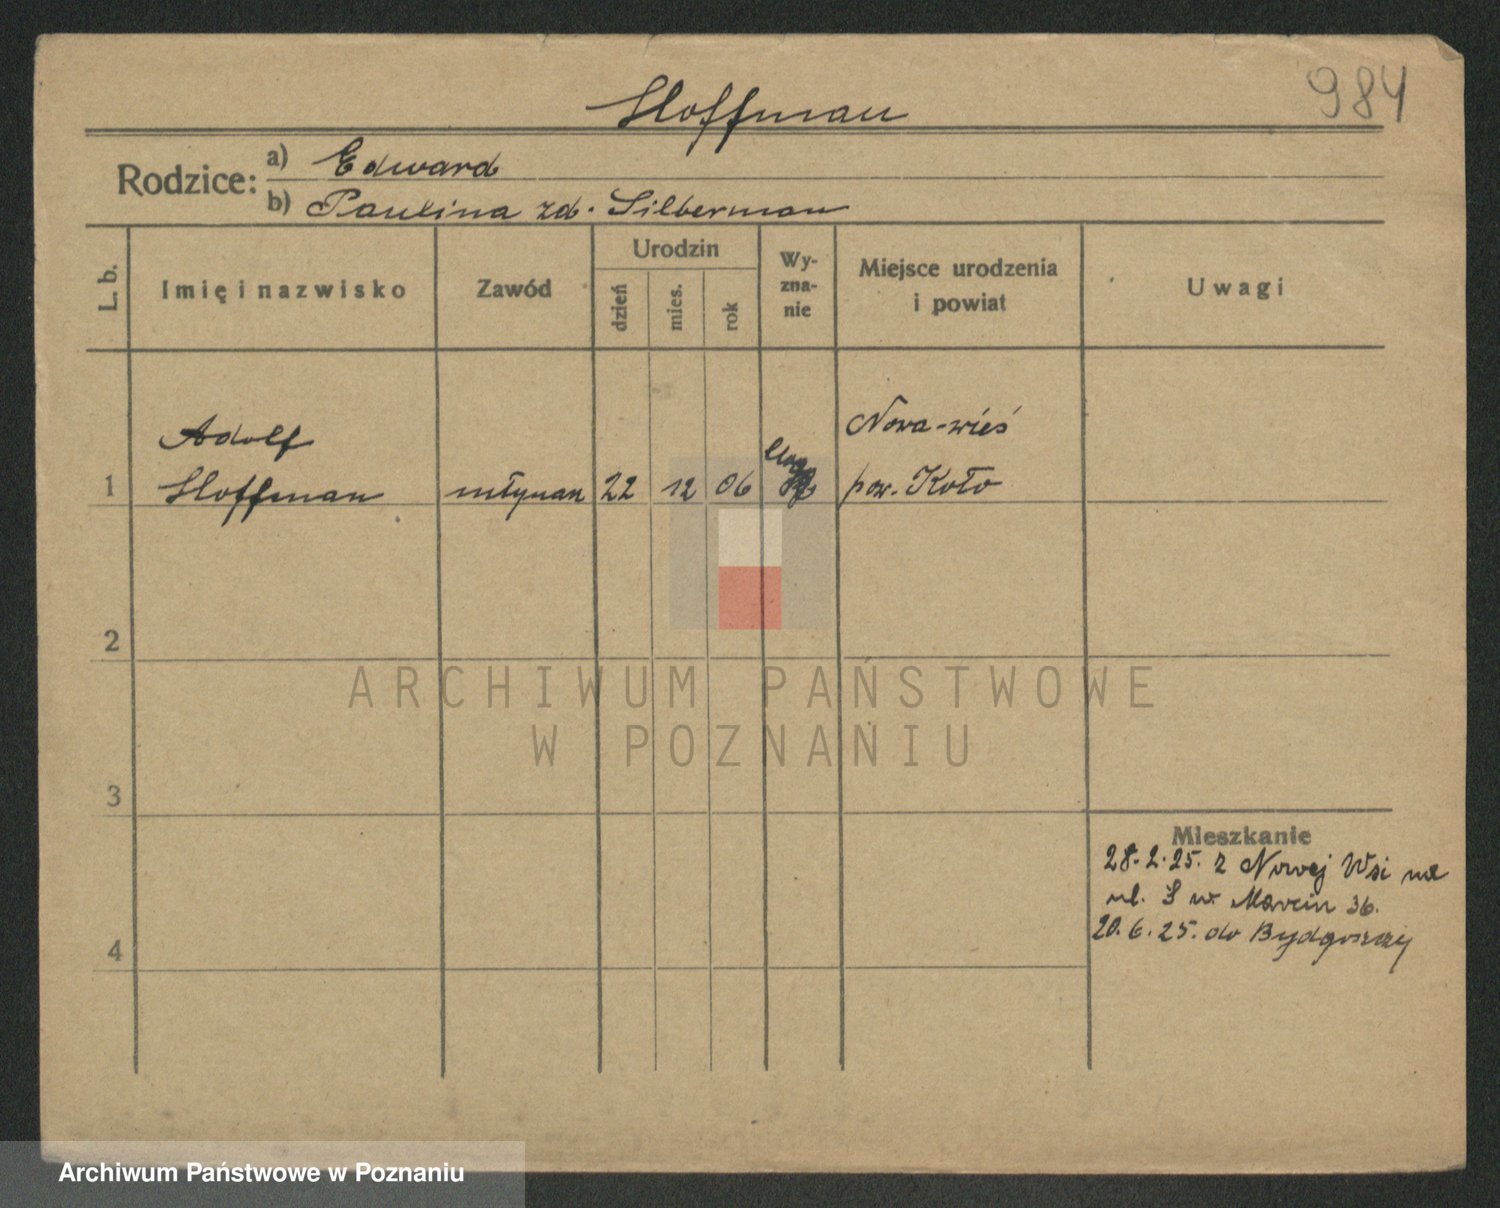 984
Hoffman
Rodzice:
a) Edward
b) Paulina zd. Silberman
L. b.
Imię i nazwisko
Zawód
Urodzin
dzień
mies.
rok
Wy-
zna-
nie
Miejsce urodzenia
i powiat
Uwagi
Adolf
Nowa-wieś
1
Hoffman
młynarz
22
12
06
pow. Koło
2
3
4
Mieszkanie
28.2.25. z Nowej Wsi na
ul. Św Marcin 36.
20.6.25. do Bydgoszczy
ARCHIWUM PAŃSTWOWE
W POZNANIU
Archiwum Państwowe w Poznaniu